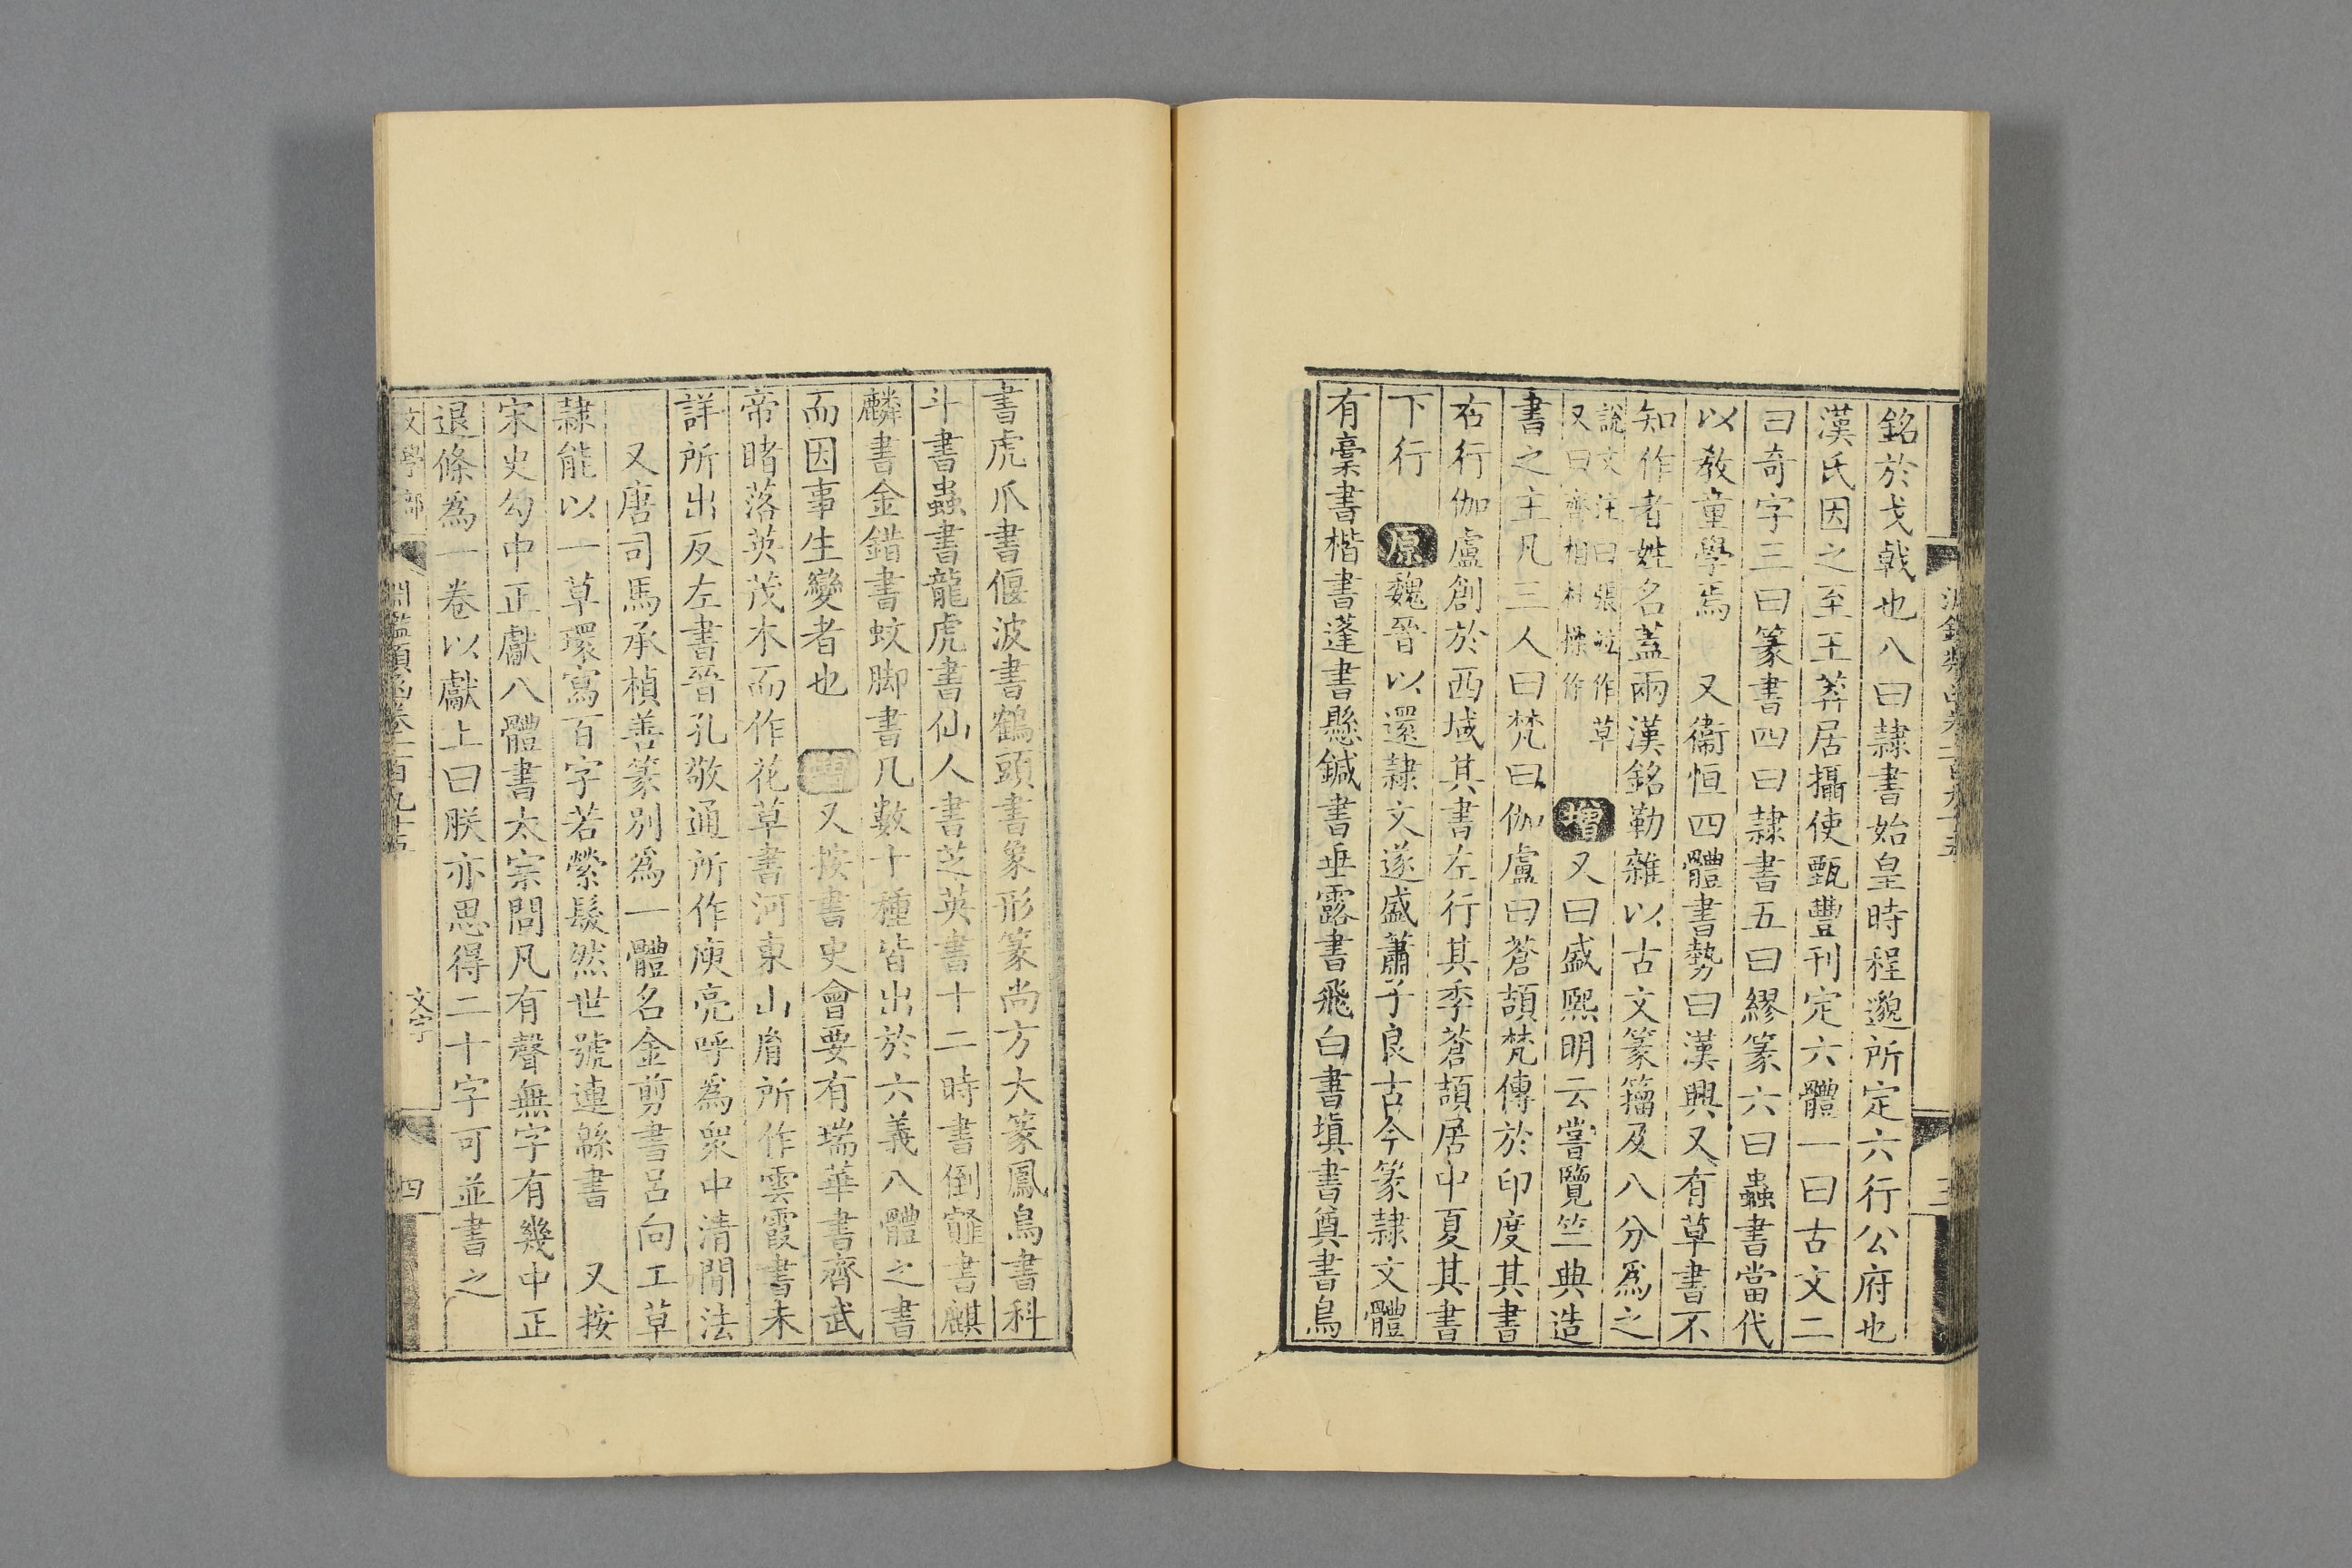 銘於戈戟也八曰隸書始皇時程邈所定六行公府也
漢氏因之至王莽居攝使甄豐刊定六體一曰古文二
曰奇字三曰篆書四曰隸書五曰繆篆六曰蟲書當代
以教童學焉 又衞恒四體書勢曰漢興又有草書不
知作者姓名蓋兩漢銘勒雜以古文篆籀及八分爲之
說文注曰張竝作草
又曰齊相杜操作
增又曰盛熙明云嘗覽竺典造
書之主凡三人曰梵曰伽盧曰蒼頡梵傳於印度其書
右行伽盧創於西域其書左行其季蒼頡居中夏其書
下行 原魏晉以還隸文遂盛蕭子良古今篆隸文體
有稾書楷書蓬書懸鍼書垂露書飛白書塡書奠書鳥
書虎爪書偃波書鶴頭書象形篆尚方大篆鳳鳥書科
斗書蟲書龍虎書仙人書芝英書十二時書倒薤書麒
麟書金錯書蚊脚書凡數十種皆出於六義八體之書
而因事生變者也 增又按書史會要有瑞華書齊武
帝睹落英茂木而作花草書河東山胤所作雲霞書未
詳所出反左書晉孔敬通所作庾亮呼爲衆中清閒法
又唐司馬承楨善篆別爲一體名金剪書呂向工草
隸能以一草環寫百字若縈髮然世號連緜書 又按
宋史勾中正獻八體書太宗問凡有聲無字有幾中正
退條爲一卷以獻上曰朕亦思得二十字可並書之
文學部 淵鑑類函卷一百九十五 文字 四